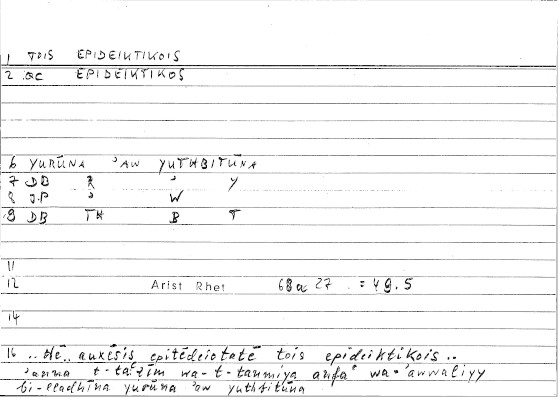 1 TOIS EPIDEIKTIKOIS
2 ac EPIDEIKTIKOS
6 YURŪNA ʾAW YUTHBITŪNA
7 DB R ʾ Y
8 J.P ʾ W
9 DB TH B T
11
12 Arist Rhet 68a27 = 49.5
14
16 ..Hē.. auxēsis epitēdeiotatē tois epideiktikois..
ʾanna t-taʿẓīm wa-t-tanmiya anfaʿ wa-ʾawwaliyy
bi-lladhīna yurūna ʾaw yuthbitūna